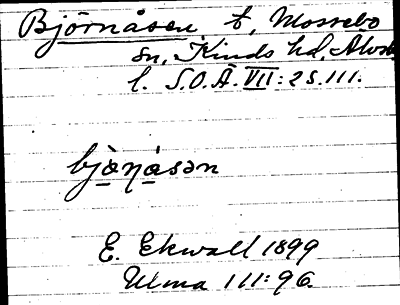 Björnåsen, t, Mossebo
sn, Kinds hd, Älvsb.
l. S.O.Ä. VII: 2 S. 111.
bjὰ̱ŋá̱sən
E. Ekwall 1899
Ulma 111:96.